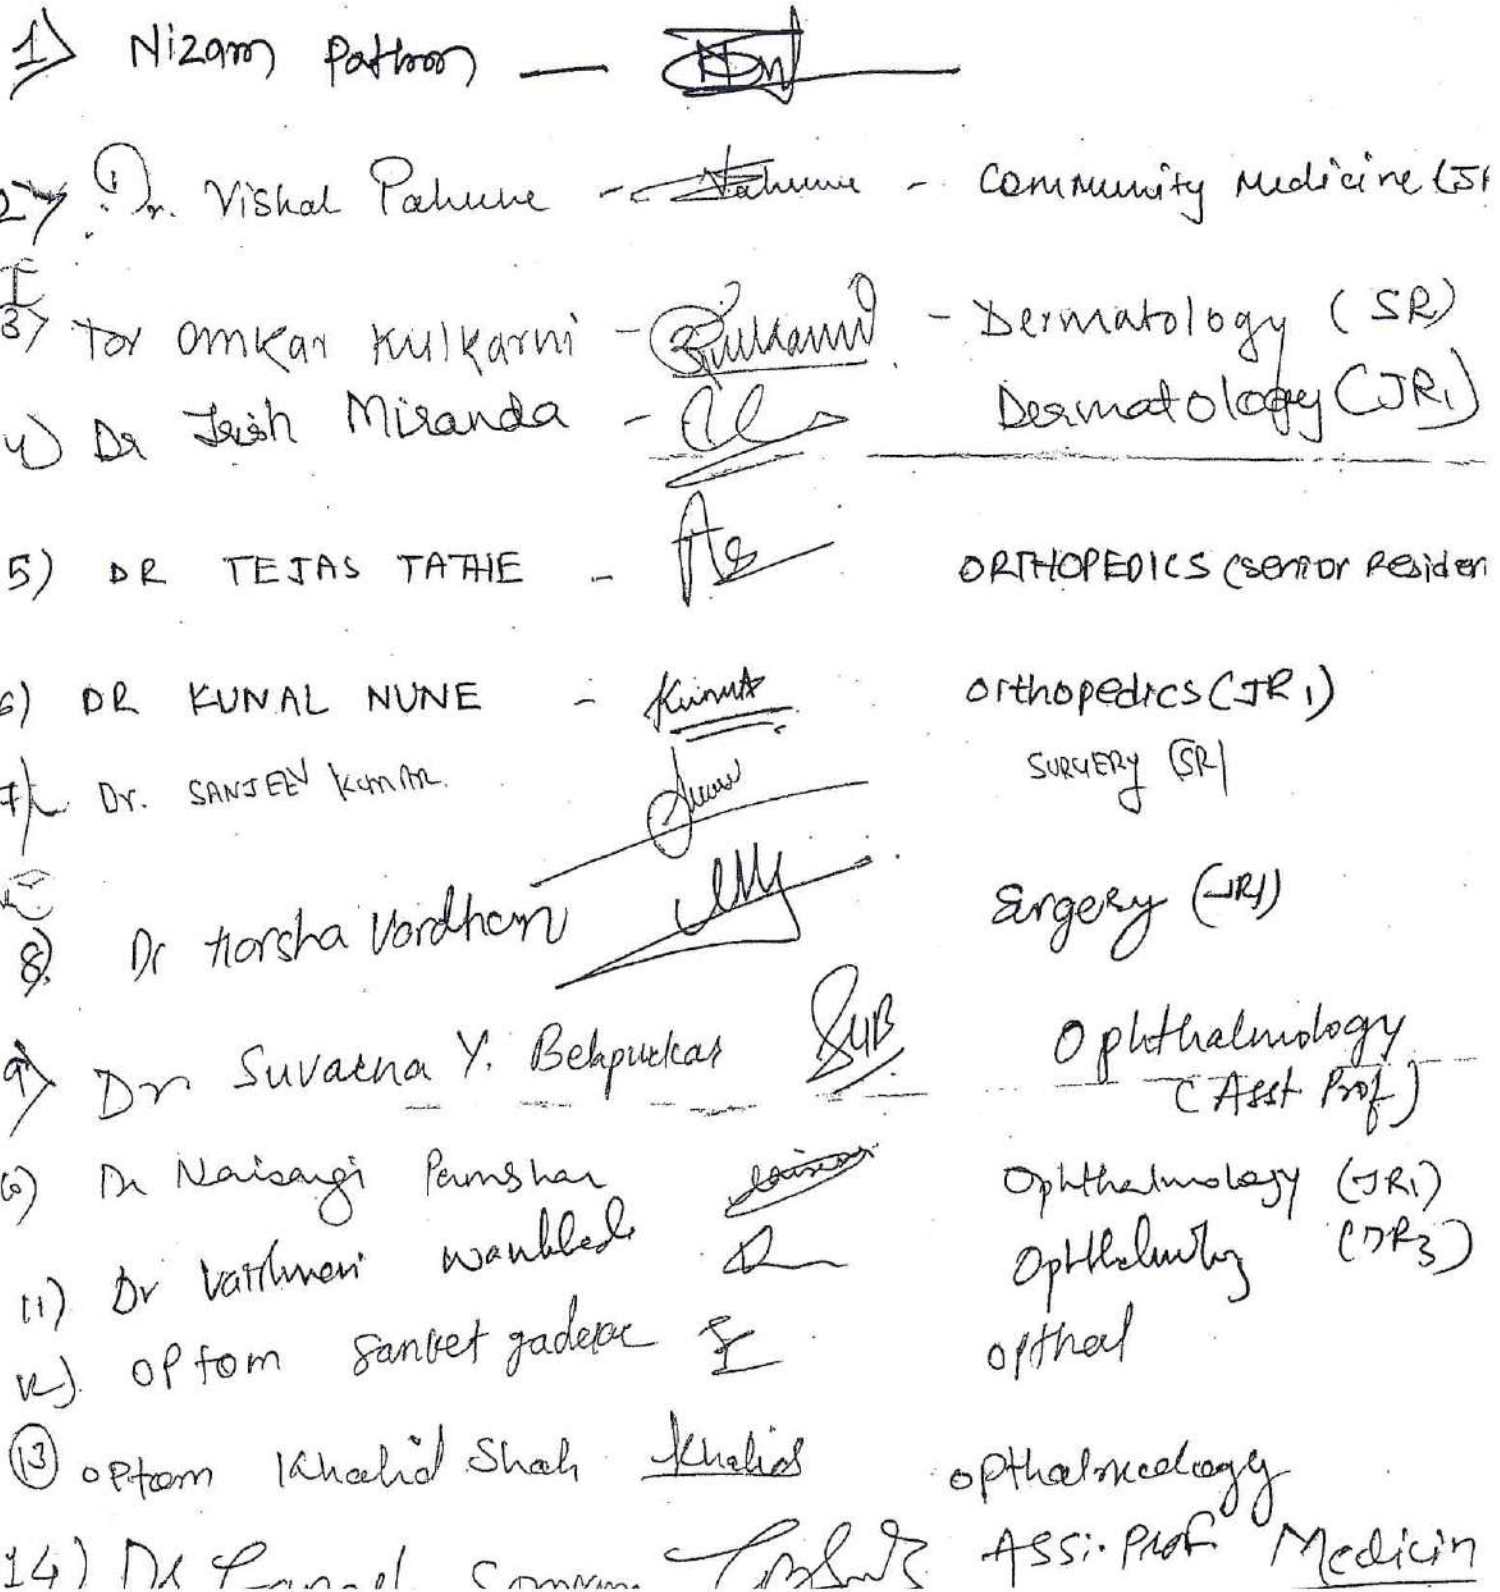 1) Nizam Pathan —
2) Dr. Vishal Pahune - Pahune - Community Medicine (J
3) Dr Omkar Kulkarni - Kulkarni - Dermatology (SR)
4) Dr Irish Miranda - Dermatology (JR1)
5) DR TEJAS TATHE - ORTHOPEDICS (senior Residen
6) DR KUNAL NUNE - Kunal Orthopedics (JR1)
7) Dr. SANJEEV KUMAR. SURGERY (SR)
8) Dr Harsha Vardhan Surgery (JR1)
9) Dr Suvarna Y. Belapurkar SYB Ophthalmology
(Asst Prof)
10) Dr Naisargi Ophthalmology (JR1)
11) Dr Vaishnavi Wankhede Ophthalmology (JR3)
12). Optom Sanket opthal
13 Optom Khalid Shah Khalid opthalmology
14) Dr Assi. Prof. Medicin